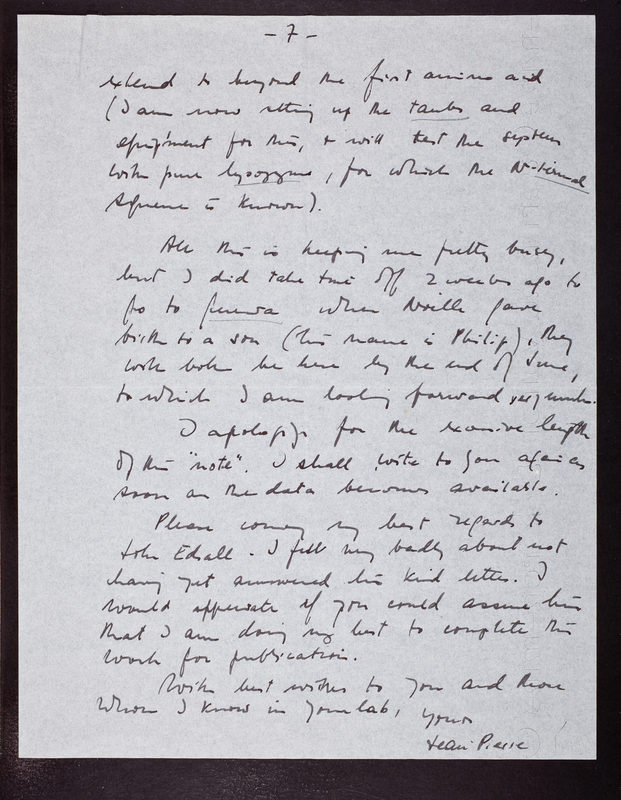 - 7 -
extend to beyond the first amino acid
(I am now setting up the tanks and
equipment for this, & will test the system
with pure lysozyme, for which the N-terminal
sequence is known).
All this is keeping me pretty busy,
but I did take time off 2 weeks ago to
go to Geneva when Noelle gave
birth to a son (his name is Philip), they
will both be here by the end of June,
to which I am looking forward very much.
I apologize for the excessive length
of this "note". I shall write to you again as
soon as the data becomes available.
Please convey my best regards to
John Edsall - I feel very badly about not
having yet answered his kind letter. I
would appreciate if you could assure him
that I am doing my best to complete this
work for publication.
With best wishes to you and those
whom I know in your lab,
Yours
Jean Pierre